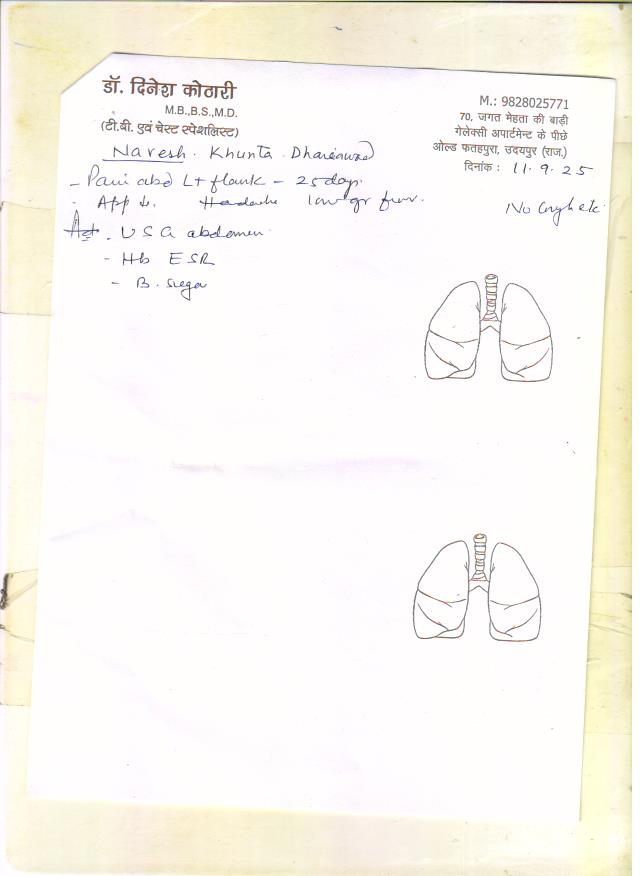 डॉ. दिनेश कोठारी
M.B.,B.S.,M.D.
(टी.बी. एवं चेस्ट स्पेशलिस्ट)
M.: 9828025771
70, जगत मेहता की बाड़ी
गेलेक्सी अपार्टमेन्ट के पीछे
ओल्ड फतहपुरा, उदयपुर (राज.)
दिनांक : 11.9.25
Naresh. Khunta. Dhariawad
- Pain abd Lt flank - 25 days
App Headache low gr fever. No cough etc.
USG abdomen
- Hb ESR
- B. Sugar